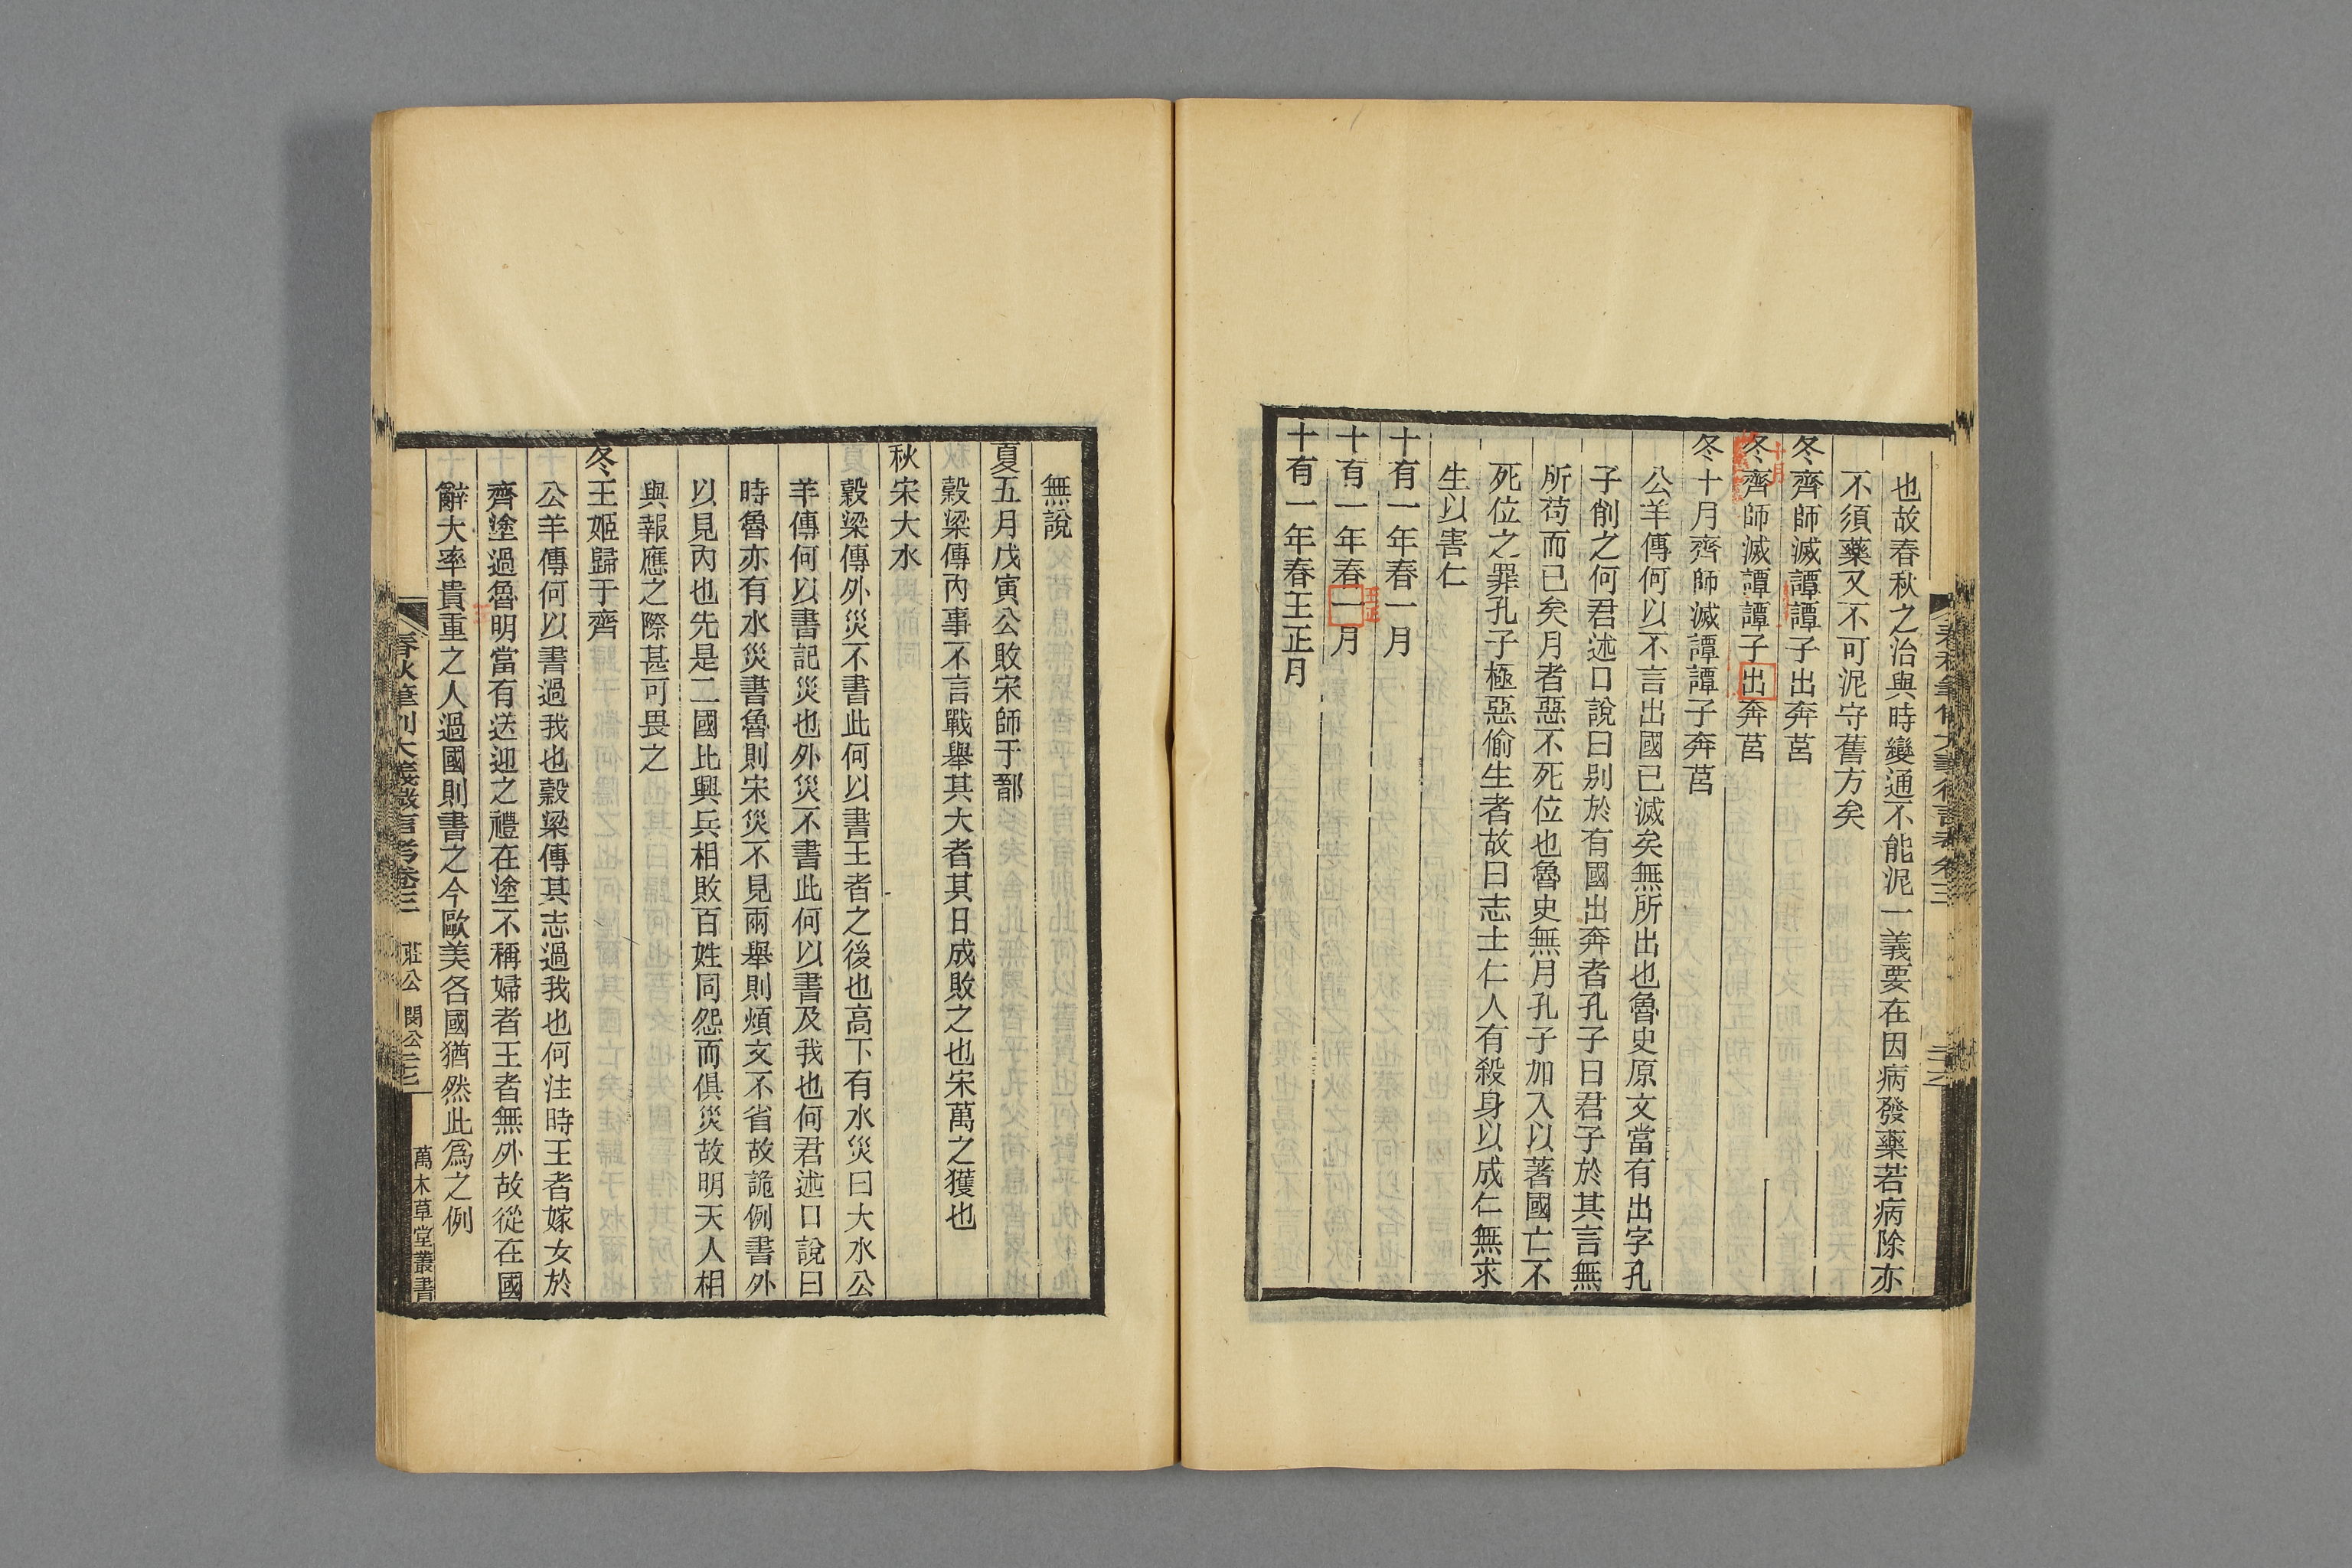 也故春秋之治與時變通不能泥一義要在因病發藥若病除亦
不須藥又不可泥守舊方矣
冬齊師滅譚譚子出奔莒
十月
冬齊師滅譚譚子出奔莒
冬十月齊師滅譚譚子奔莒
公羊傳何以不言出國已滅矣無所出也魯史原文當有出字孔
子削之何君述口說曰别於有國出奔者孔子曰君子於其言無
所苟而已矣月者惡不死位也魯史無月孔子加入以著國亡不
死位之罪孔子極惡偷生者故曰志士仁人有殺身以成仁無求
生以害仁
十有一年春一月
王正
十有一年春一月
十有一年春王正月
無說
夏五月戊寅公敗宋師于鄑
穀梁傳內事不言戰舉其大者其日成敗之也宋萬之獲也
秋宋大水
穀梁傳外災不書此何以書王者之後也高下有水災曰大水公
羊傳何以書記災也外災不書此何以書及我也何君述口說曰
時魯亦有水災書魯則宋災不見兩舉則煩文不省故詭例書外
以見內也先是二國比興兵相敗百姓同怨而俱災故明天人相
與報應之際甚可畏之
冬王姬歸于齊
公羊傳何以書過我也穀梁傳其志過我也何注時王者嫁女於
齊塗過魯明當有送迎之禮在塗不稱婦者王者無外故從在國
辭大率貴重之人過國則書之今歐美各國猶然此爲之例
春秋筆削大義微言考卷三 莊公 閔公
萬木草堂叢書